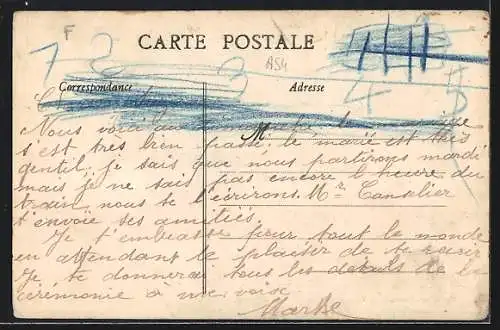 F
CARTE POSTALE
AS4
1 2 3 4 5
Correspondance
Adresse
Nous voici au
s'est très bien passé, le marié est très
gentil je sais que nous partirons mardi
mais je ne sais pas encore l'heure du
train nous te l'écrirons. Mr
t'envoie ses amitiés.
Je t'embrasse pour tout le monde
en attendant le plaisir de te voir
Je te donnerai tous les détails de la
cérémonie à